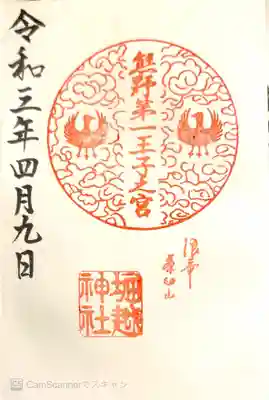 熊野第一王子之宮
浪華
茶臼山
堀越
神社
令和三年四月九日
CamScannerでスキャン